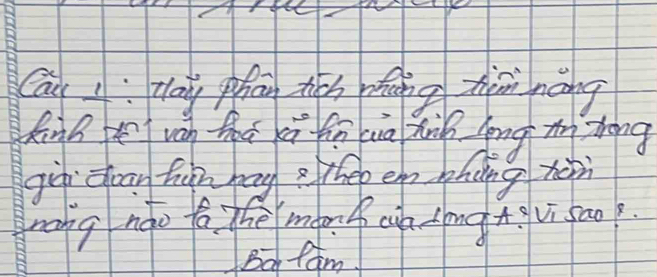 Câu 1: Hãy phân tích những tiềm năng
kinh tế văn hoá xã hội của tỉnh Long An trong
giai đoạn hiện nay? Theo em những tiềm
năng nào là thế mạnh của Long A? Vì sao?.
Bài làm